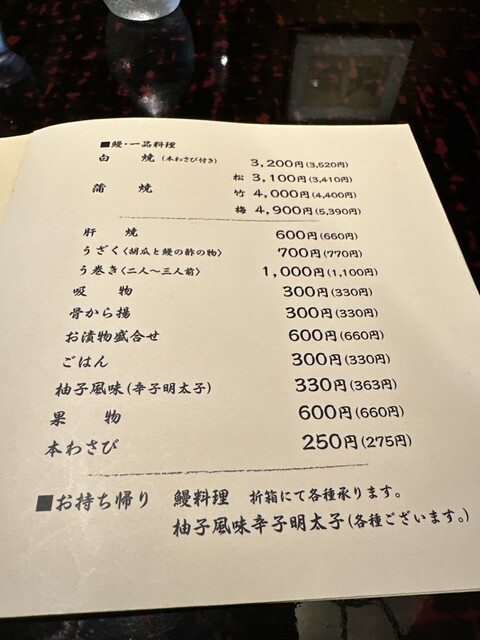 ■鰻・一品料理
白焼（本わさび付き） 3,200円(3,520円)
松 3,100円(3,410円)
蒲焼 竹 4,000円(4,400円)
梅 4,900円(5,390円)
肝焼 600円(660円)
うざく〈胡瓜と鰻の酢の物〉 700円(770円)
う巻き〈二人～三人前〉 1,000円(1,100円)
吸物 300円(330円)
骨から揚 300円(330円)
お漬物盛合せ 600円(660円)
ごはん 300円(330円)
柚子風味(辛子明太子) 330円(363円)
果物 600円(660円)
本わさび 250円(275円)
■お持ち帰り 鰻料理 折箱にて各種承ります。
柚子風味辛子明太子(各種ございます。)